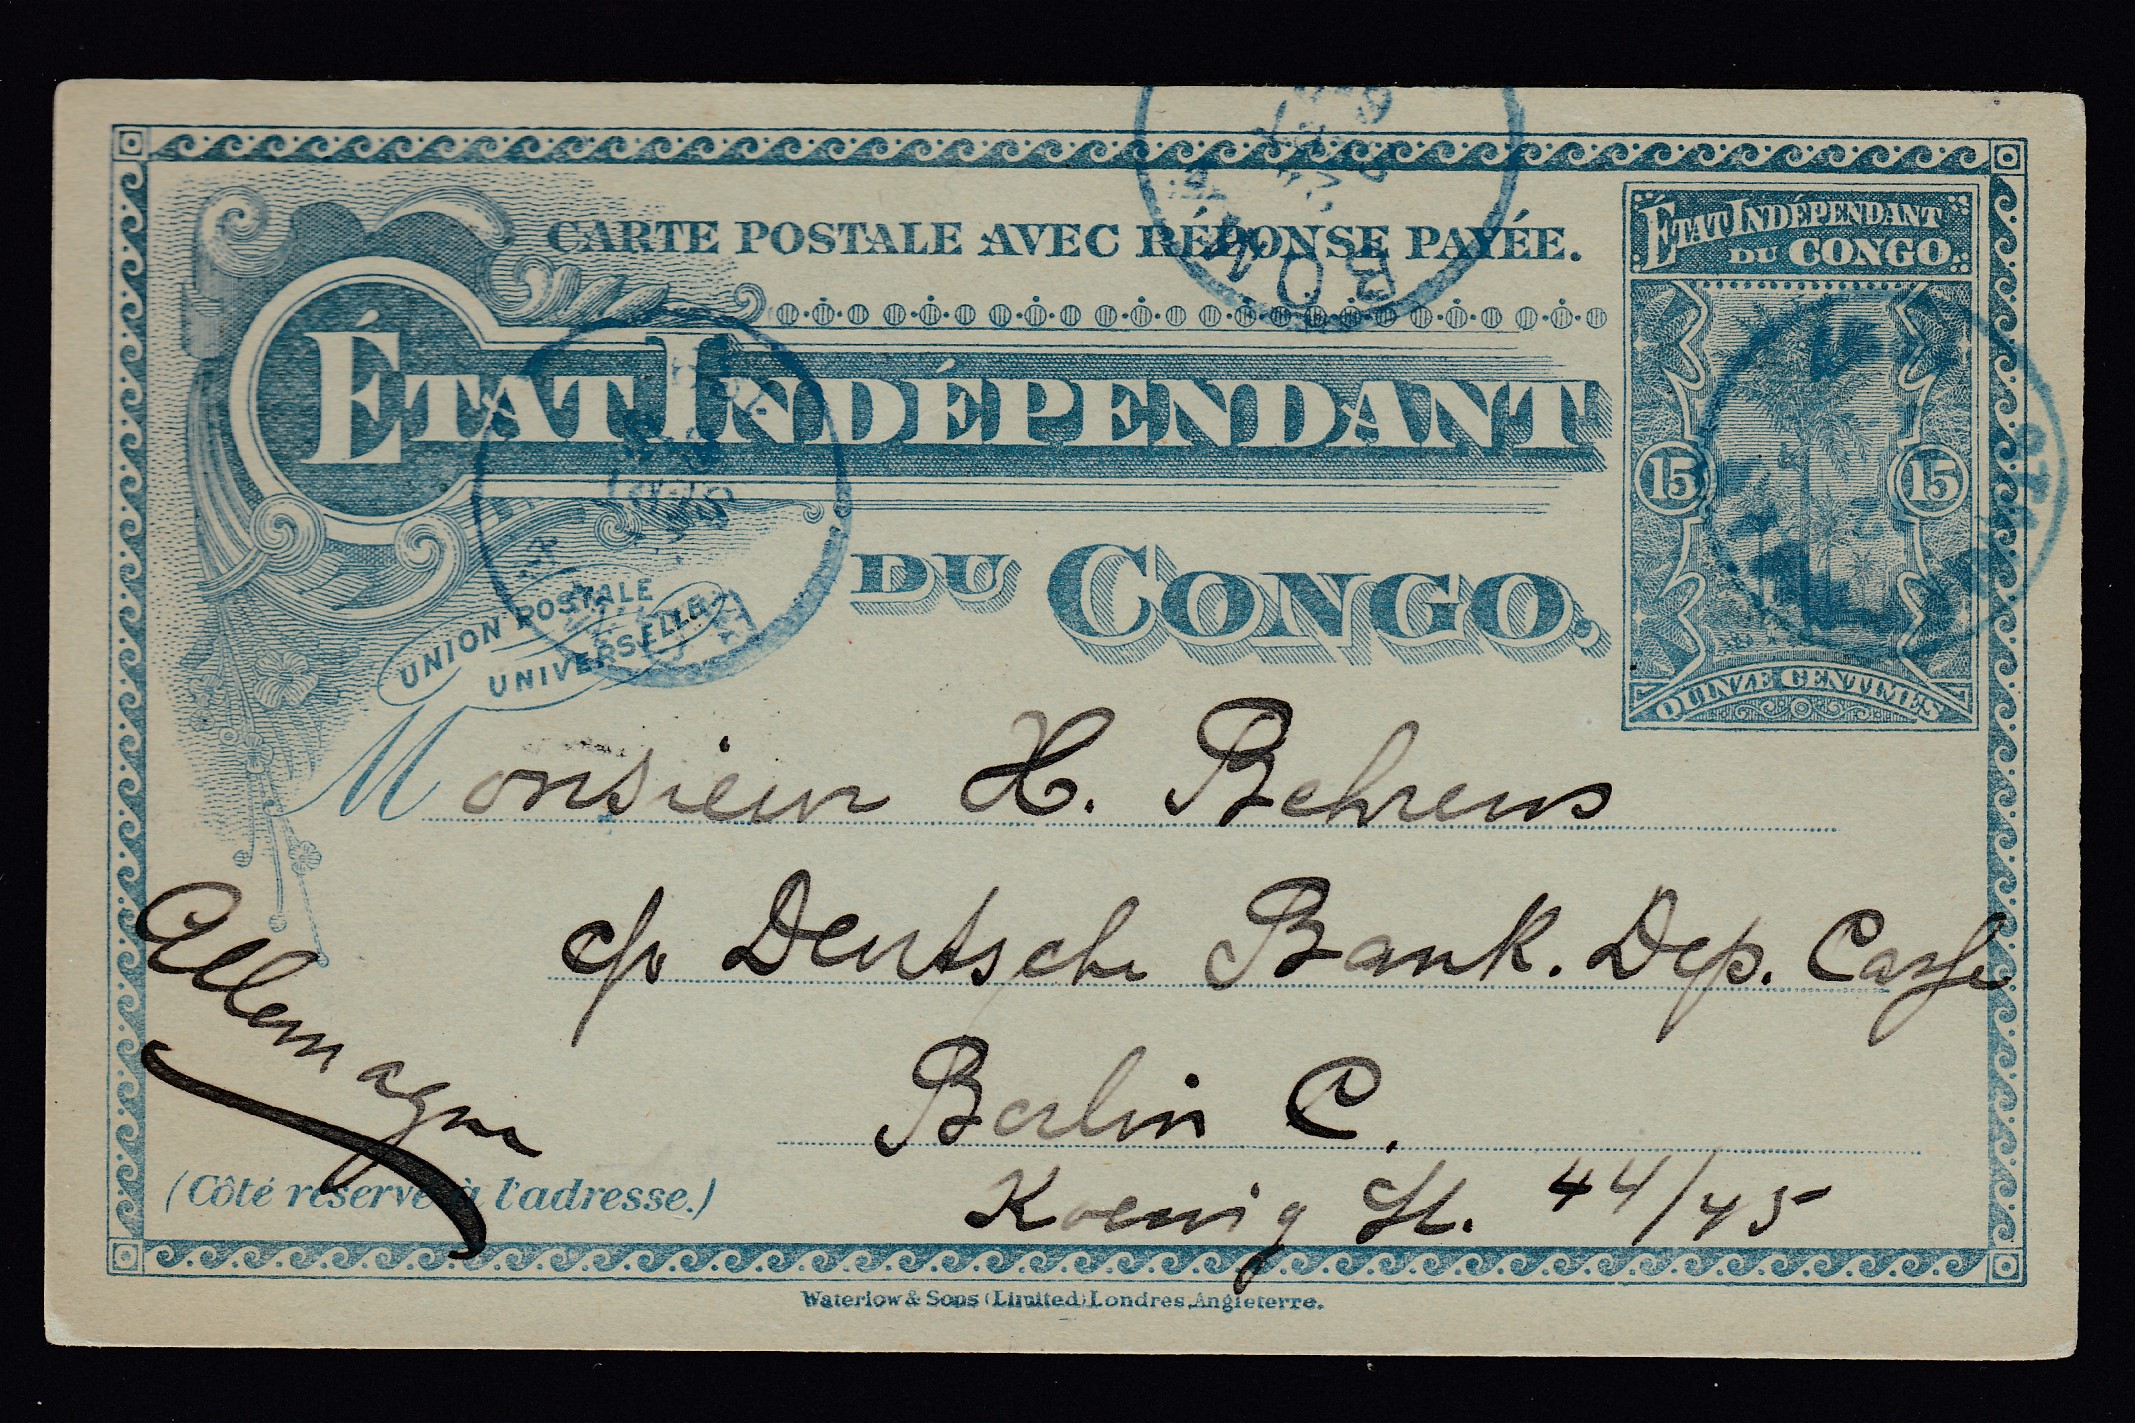 CARTE POSTALE AVEC RÉPONSE PAYÉE.
ÉTAT INDÉPENDANT
DU CONGO.
ÉTAT INDÉPENDANT
DU CONGO.
15 15
QUINZE CENTIMES
UNION POSTALE
UNIVERSELLE
BOMA
Monsieur H. Behrens
c/o Deutsche Bank. Dep. Casse
Berlin C.
Koenig St. 44/45
Allemagne
(Côté réservé à l'adresse.)
Waterlow & Sons (Limited) Londres, Angleterre.